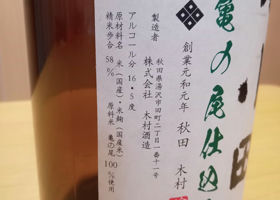 亀の尾仕込
創業元和元年 秋田 木村
製造者
秋田県湯沢市田町二丁目一番十一号
株式会社 木村酒造
アルコール分 16・5度
原材料名 米(国産)・米麹(国産米)
原料米 亀の尾 100%使用
精米歩合 58%